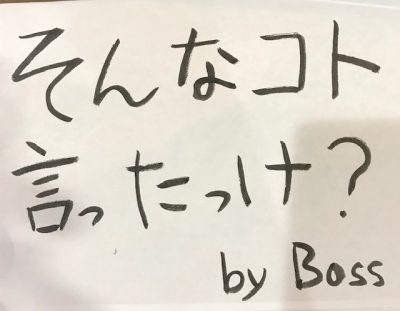 そんなコト
言ったっけ？
by Boss